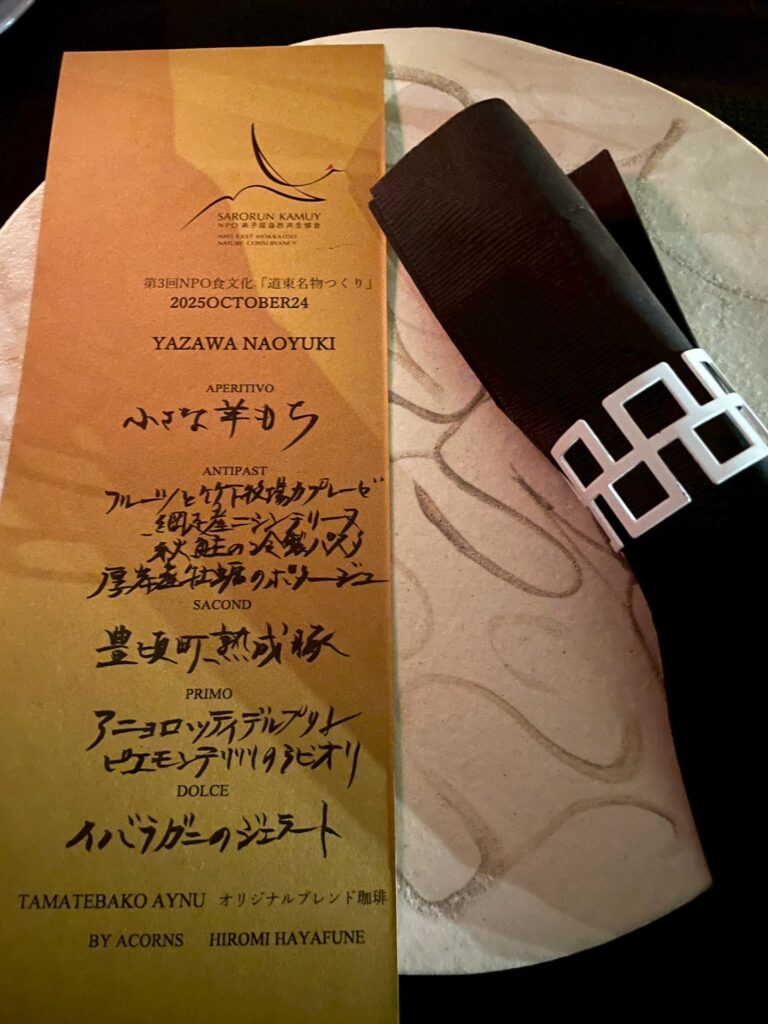 SARORUN KAMUY
NPO 弟子屈自然共生協会
NPO EAST HOKKAIDO
NATURE CONSERVANCY
第3回NPO食文化「道東名物つくり」
2025OCTOBER24
YAZAWA NAOYUKI
APERITIVO
小さな羊もち
ANTIPAST
フルーツと竹下牧場カプレーゼ
産ニシンテリーヌ
秋鮭の冷製パスタ
厚岸産牡蠣のポタージュ
SACOND
豊頃町熟成豚
PRIMO
アニョロッティデルプリン
ピエモンテのラビオリ
DOLCE
イバラガニのジェラート
TAMATEBAKO AYNU オリジナルブレンド珈琲
BY ACORNS HIROMI HAYAFUNE